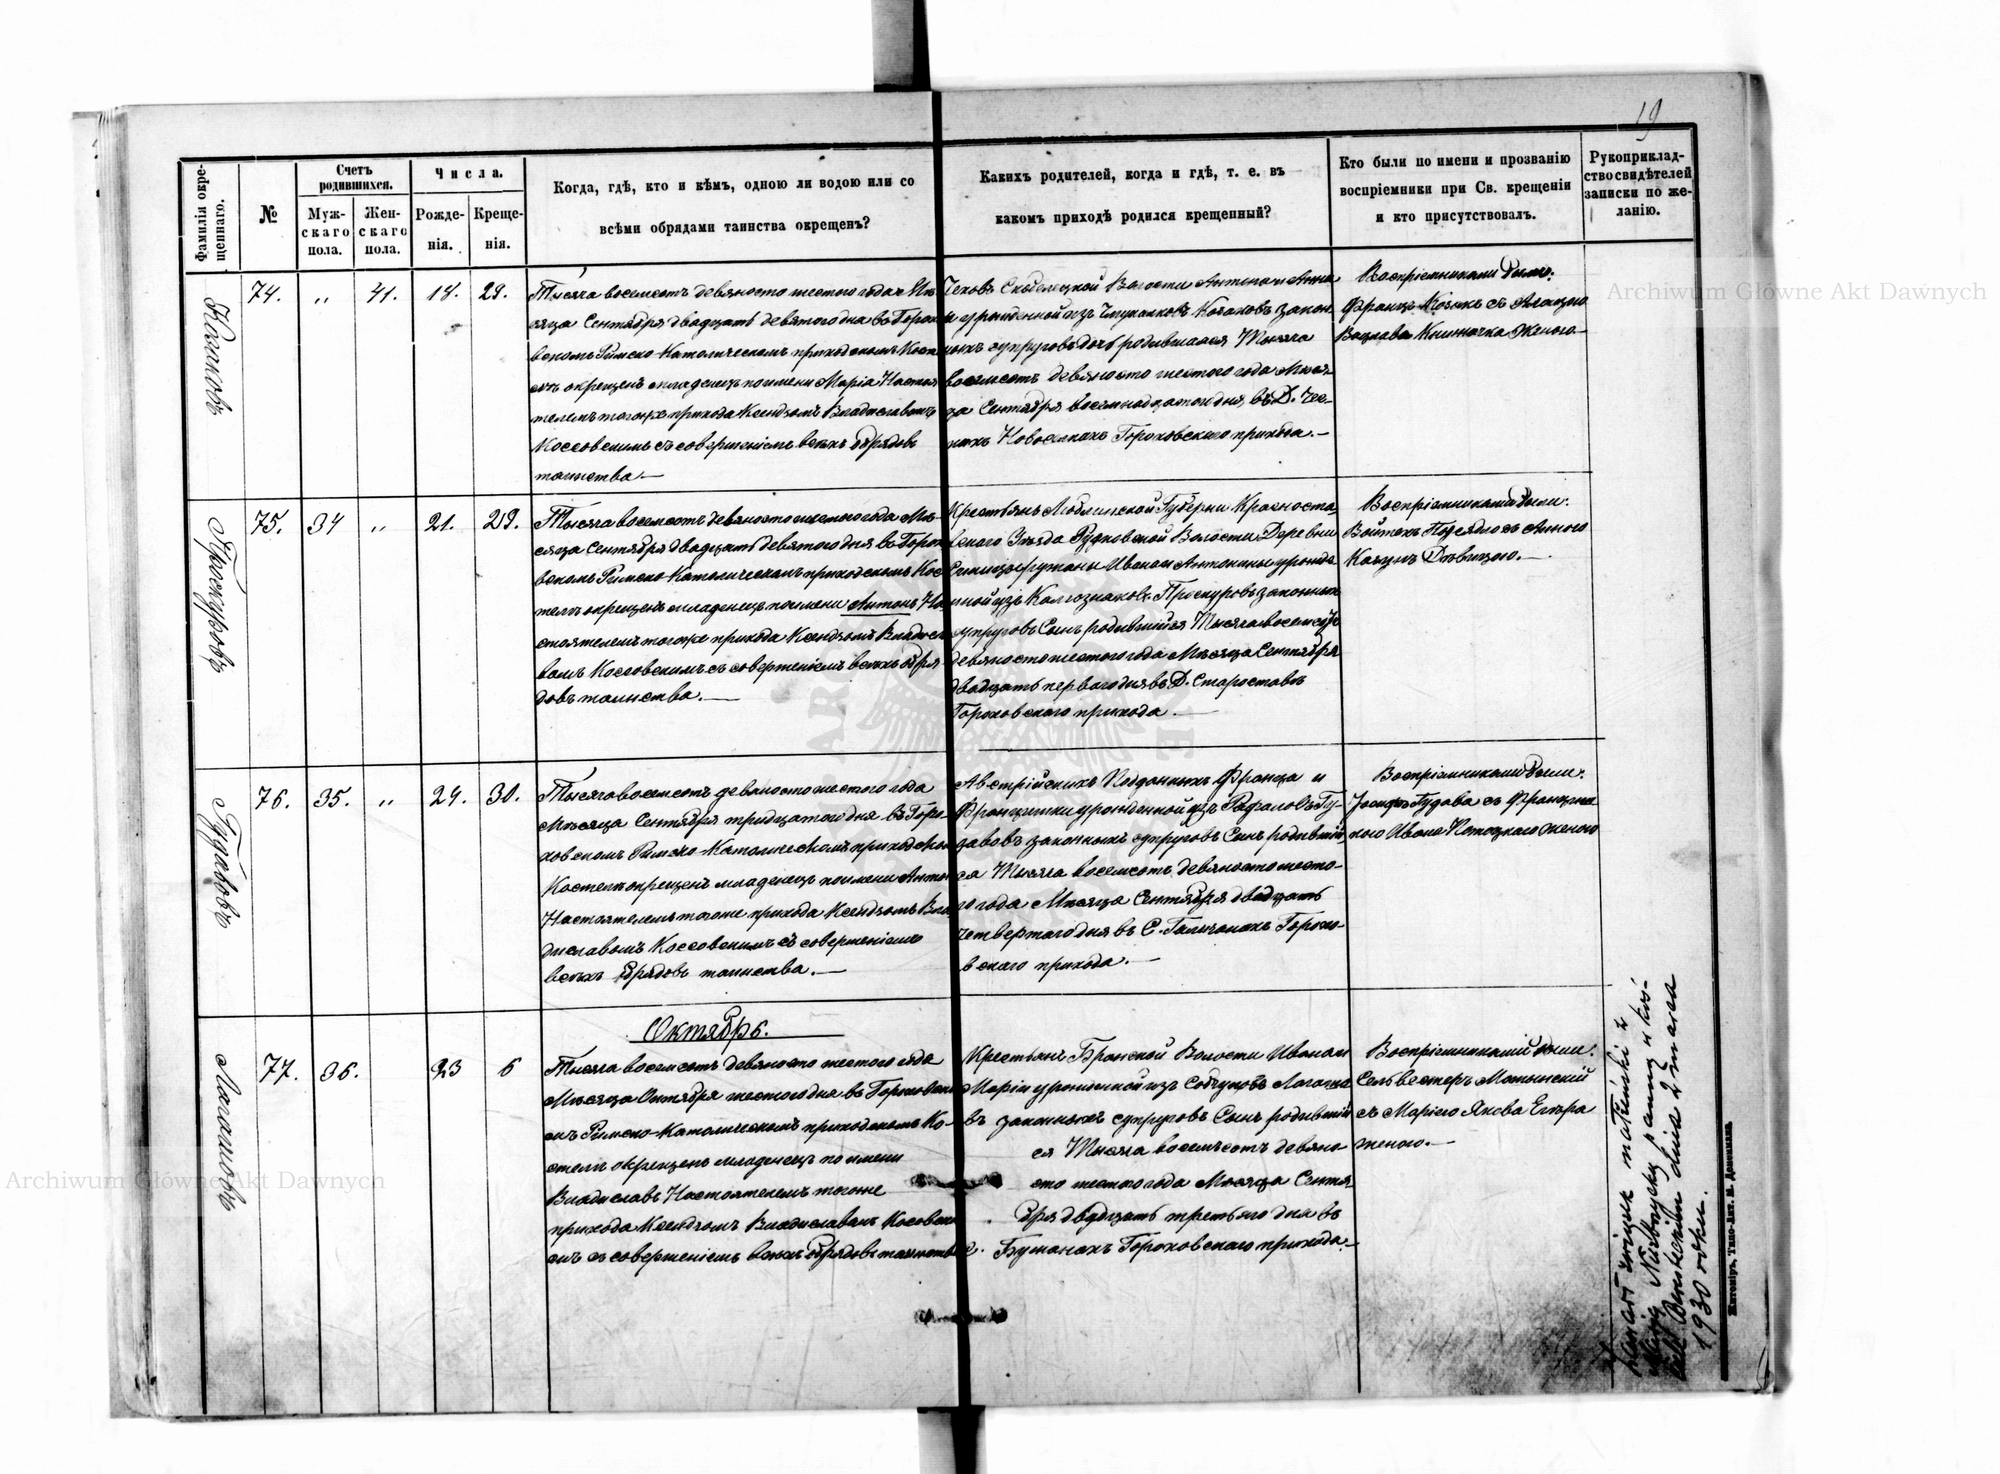 19
Фамилія окре-
щеннаго.
№
Счетъ
родившихся.
Муж-
скаго
пола.
Жен-
скаго
пола.
Числа.
Рожде-
нія.
Креще-
нія.
Когда, гдѣ, кто и кѣмъ, одною ли водою или со
всѣми обрядами таинства окрещенъ?
Какихъ родителей, когда и гдѣ, т. е. въ
какомъ приходѣ родился крещенный?
Кто были по имени и прозванію
воспріемники при Св. крещеніи
и кто присутствовалъ.
Рукоприклад-
ство свидѣтелей
записки по же-
ланію.
74. " 41. 18. 29.
Тысяча восемсотъ девяносто шестого года Мѣ-
сяца Сентября двадцать девятого дня въ Горохо
вскомъ Римско-Католическомъ приходскомъ Косте
лѣ окрещенъ младенецъ по имени Марія Настоя
телемъ тогоже прихода Ксендзомъ Владиславомъ
Коссовскимъ съ совершеніемъ всѣхъ обрядовъ
таинства.—
Чеховъ Волости Антона и Анны
урожденной изъ закон-
ныхъ супруговъ дочь родившаяся Тысяча
восемсотъ девяносто шестого года Мѣся-
ца Сентября восемнадцатого дня въ Д. Чес-
кихъ Новоселкахъ Гороховского прихода.—
Воспріемниками были:
Францъ съ
Вацлава женою
75. 34 " 21. 29.
Тысяча восемсотъ девяносто шестого года Мѣ-
сяца Сентября двадцать девятого дня въ Горохо
вскомъ Римско-Католическомъ приходскомъ Кос
телѣ окрещенъ младенецъ по имени Антонъ На
стоятелемъ тогоже прихода Ксендзомъ Владисла
вомъ Коссовскимъ съ совершеніемъ всѣхъ обря
довъ таинства.—
Крестьянъ Люблинской Губерни Красноста-
вского Уѣзда Волости Деревни
Ивана и Антонины урожде
нной изъ Проскуровъ законныхъ
супруговъ Сынъ родившійся Тысяча восемсотъ
девяносто шестого года Мѣсяца Сентября
двадцать первого дня въ Д. Староставъ
Гороховского прихода.—
Воспріемниками были:
Войтехъ съ Анною
Дѣвицею.—
76. 35. " 24. 30.
Тысяча восемсотъ девяносто шестого года
Мѣсяца Сентября тридцатого дня въ Горо-
ховскомъ Римско-Католическомъ приходском
Костелѣ окрещенъ младенецъ по имени Антон
Настоятелемъ тогоже прихода Ксендзомъ Вла
диславомъ Коссовскимъ съ совершеніемъ
всѣхъ обрядовъ таинства.—
Австрійскихъ Подданныхъ Франца и
Францишки урожденной изъ Рафаловъ Гу-
давовъ законныхъ супруговъ Сынъ родившій
ся Тысяча восемсотъ девяносто шесто-
го года Мѣсяца Сентября двадцать
четвертаго дня въ С. Галичанахъ Горохо-
вскаго прихода.—
Воспріемниками были:
Іосифъ Гудава съ Францишк
кою Ивана Потоцкаго женою
Октябрь.
77. 36. 23 6
Тысяча восемсотъ девяносто шестого года
Мѣсяца Октября шестого дня въ Гороховск
омъ Римско-Католическомъ приходскомъ Ко-
стелѣ окрещенъ младенецъ по имени
Владиславъ Настоятелемъ тогоже
прихода Ксендзомъ Владиславомъ Косовск
имъ съ совершеніемъ всѣхъ обрядовъ таинства.
Крестьянъ Бранской Волости Ивана и
Маріи урожденной изъ
въ законныхъ супруговъ Сынъ родившій
ся Тысяча восемьсотъ девяно
сто шестого года Мѣсяца Сентя
бря двадцать третьяго дня въ
Бужанахъ Гороховского прихода.—
Воспріемниками были:
Сельвестеръ Матынскій
съ Маріею Якова
женою.—
związek małżeński z
dnia 2 marca
1930 roku.
Житоміръ, Типо-Лит. М. Дененмана.
Archiwum Główne Akt Dawnych
Archiwum Główne Akt Dawnych